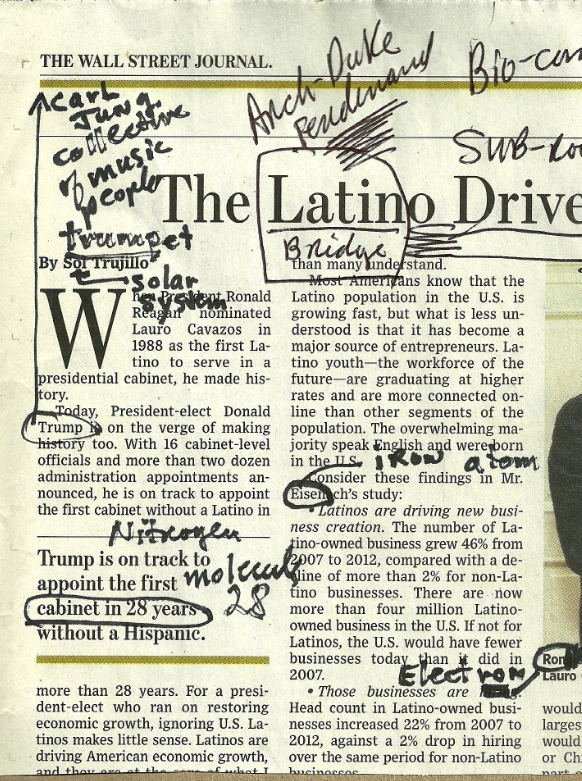 THE WALL STREET JOURNAL.
Arch-Duke
Ferdinand
Bio-com
Carl
Jung
collective
of music
people
trumpet
SUB-
The Latino Drive
Bridge
By Sol Trujillo
solar
system
When President Ronald
Reagan nominated
Lauro Cavazos in
1988 as the first La-
tino to serve in a
presidential cabinet, he made his-
tory.
Today, President-elect Donald
Trump is on the verge of making
history too. With 16 cabinet-level
officials and more than two dozen
administration appointments an-
nounced, he is on track to appoint
the first cabinet without a Latino in
Nitrogen
molecule
28
Trump is on track to
appoint the first
cabinet in 28 years
without a Hispanic.
more than 28 years. For a presi-
dent-elect who ran on restoring
economic growth, ignoring U.S. La-
tinos makes little sense. Latinos are
driving American economic growth,
and they are at the core of what I
than many understand.
Most Americans know that the
Latino population in the U.S. is
growing fast, but what is less un-
derstood is that it has become a
major source of entrepreneurs. La-
tino youth—the workforce of the
future—are graduating at higher
rates and are more connected on-
line than other segments of the
population. The overwhelming ma-
jority speak English and were born
in the U.S.
iron atom
Consider these findings in Mr.
Eisenach's study:
• Latinos are driving new busi-
ness creation. The number of La-
tino-owned business grew 46% from
2007 to 2012, compared with a de-
cline of more than 2% for non-La-
tino businesses. There are now
more than four million Latino-
owned business in the U.S. If not for
Latinos, the U.S. would have fewer
businesses today than it did in
2007.
Electron
• Those businesses are
Head count in Latino-owned busi-
nesses increased 22% from 2007 to
2012, against a 2% drop in hiring
over the same period for non-Latino
businesses.
Ron
Lauro
would
larges
would
or Ch
period